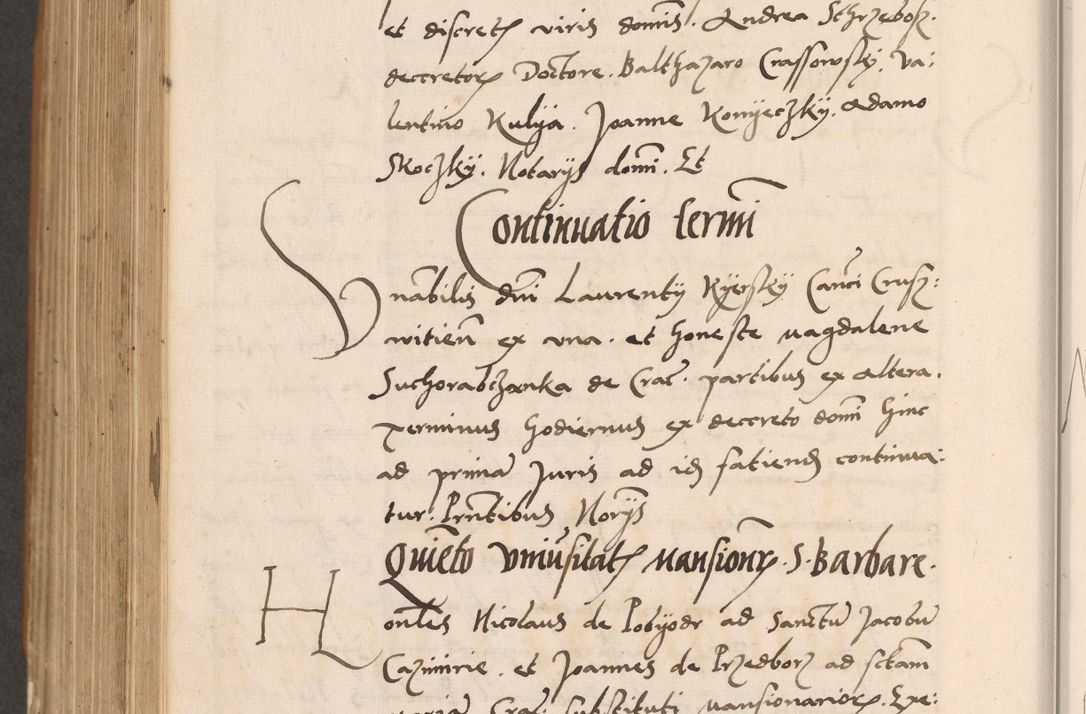 et discret viris domis. Andrea Schrzebosz.
decretor Doctore. Balthazaro Crassowsky. Va:
lentino Kulija. Joanne Konijeczkÿ. Adamo
Skoczkÿ. Notarÿs domi. Et
Continuatio termi
Vnabilis dni Laurentÿ Kÿersky Canci Crusz:
witien ex vna. et honeste Magdalene
Suchorabczanka de Crac. partibus ex altera.
terminus hodiernus ex deccreto domi hinc
ad prima Juris ad id fatiend continua:
tur. Prntibus Norÿs
Quieto Vniusitat Mansionr. S. Barbare.
Honles Nicolaus de Pobÿodr ad Sanctu Jacobu
Cazimirie. et Joannes de Przedborz ad sctam
Maria Crac. substituti mansionarior. Exe: